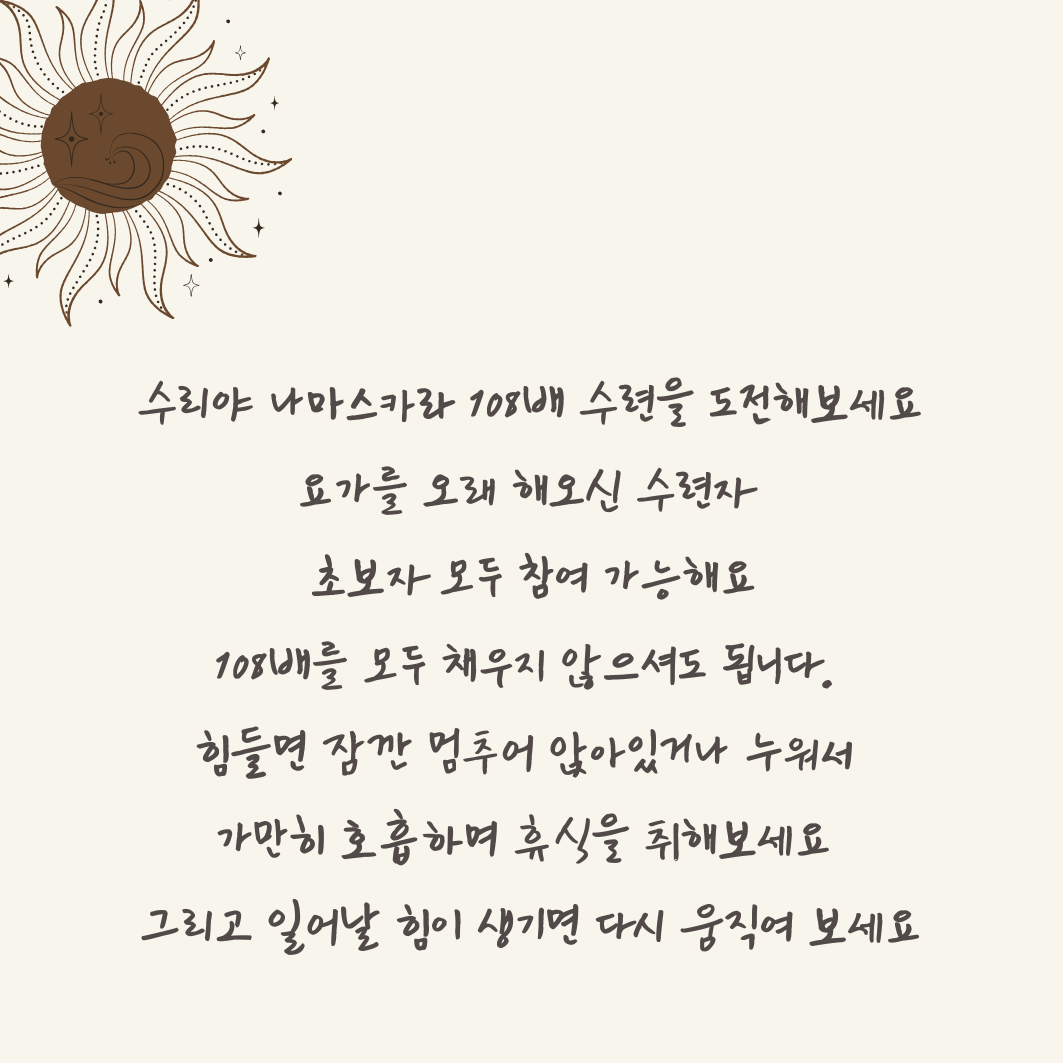 수리야 나마스카라 108배 수련을 도전해보세요
요가를 오래 해오신 수련자
초보자 모두 참여 가능해요
108배를 모두 채우지 않으셔도 됩니다.
힘들면 잠깐 멈추어 앉아있거나 누워서
가만히 호흡하며 휴식을 취해보세요
그리고 일어날 힘이 생기면 다시 움직여 보세요